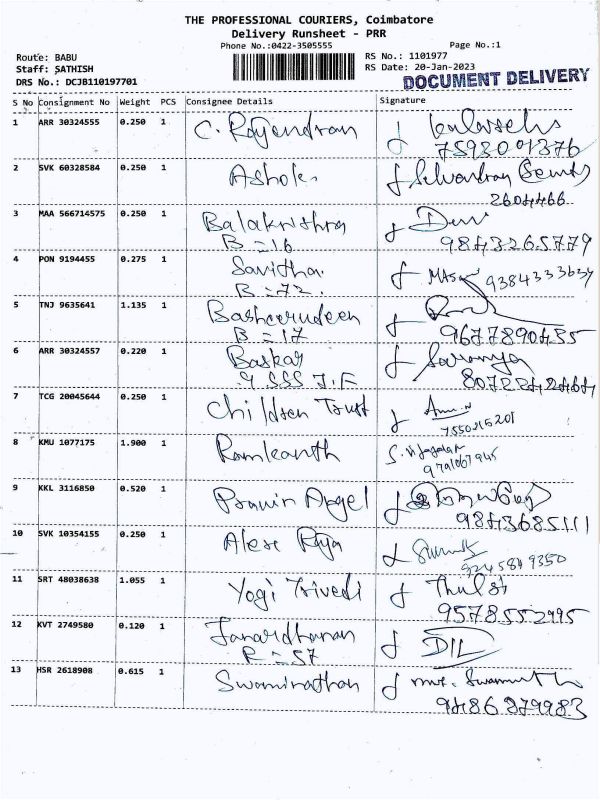 THE PROFESSIONAL COURIERS, Coimbatore
Delivery Runsheet - PRR
Phone No.:0422-3505555 Page No.:1
Route: BABU RS No.: 1101977
Staff: SATHISH RS Date: 20-Jan-2023
DRS No.: DCJB110197701 DOCUMENT DELIVERY
S No Consignment No Weight PCS Consignee Details Signature
1 ARR 30324555 0.250 1 C. Rajendran
7593001376
2 SVK 60328584 0.250 1 Ashok.
2604466
3 MAA 566714575 0.250 1 Balakrishna Devi
B = 16 9843265779
4 PON 9194455 0.275 1 Savitha. 9384333634
B = 72.
5 TNJ 9635641 1.135 1 Basheerudeen
B = 17 9677890485
6 ARR 30324557 0.220 1 Baskar Saranya
7 TCG 20045644 0.250 1 Children Trust
8 KMU 1077175 1.900 1 Ramkanth
9 KKL 3116850 0.520 1 Pravin Angel
9843685111
10 SVK 10354155 0.250 1 Alex Raja
9245849350
11 SRT 48038638 1.055 1 Yogi Trivedi Thulsi
9578552995
12 KVT 2749580 0.120 1 Janardhanan DIL
R = 57
13 HSR 2618908 0.615 1 Swaminathan
9486379983